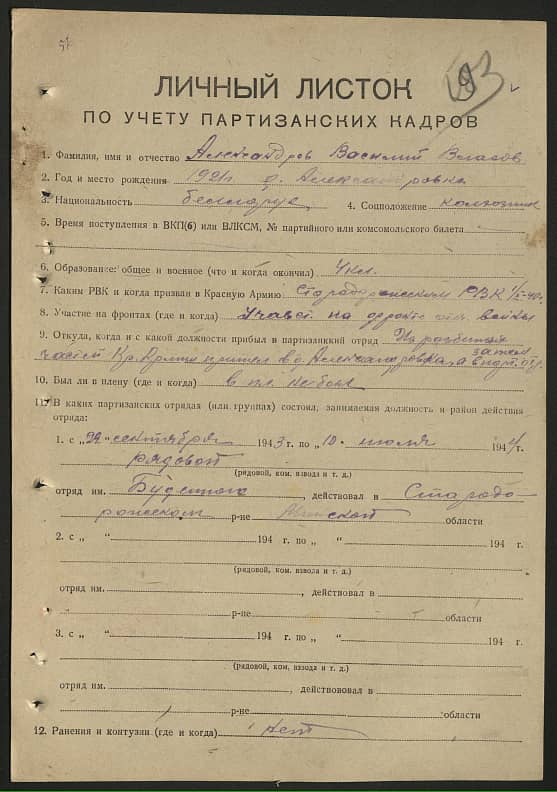 193
ЛИЧНЫЙ ЛИСТОК
ПО УЧЕТУ ПАРТИЗАНСКИХ КАДРОВ
1. Фамилия, имя и отчество Александров Василий Власов.
2. Год и место рождения 1921г. д. Александровка
3. Национальность белларус 4. Соцположение колхозник
5. Время поступления в ВКП(б) или ВЛКСМ, № партийного или комсомольского билета
6. Образование: общее и военное (что и когда окончил) 4 кл.
7. Каким РВК и когда призван в Красную Армию Стародорожским РВК 1/X-40г.
8. Участие на фронтах (где и когда) Участ. на фронте отеч. войны
9. Откуда, когда и с какой должности прибыл в партизанкий отряд Из разбитых
частей Кр. Армии пришел в д. Александровка, а затем в парт. отр.
10. Был ли в плену (где и когда) в пл. не был
11. В каких партизанских отрядах (или группах) состоял, занимаемая должность и район действия
отряда:
1. с „22" сентября 1943 г. по „10" июля 1944 г.
рядовой
(рядовой, ком. взвода и т. д.)
отряд им. Буденного, действовал в Старадо
рожском р-не Минской области
2. с „ " 194 г. по „ " 194 г.
(рядовой, ком. взвода и т. д.)
отряд им. , действовал в
р-не области
3. с „ " 194 г. по „ " 194 г.
(рядовой, ком. взвода и т. д.)
отряд им. , действововал в
р-не области
12. Ранения и контузии (где и когда) нет